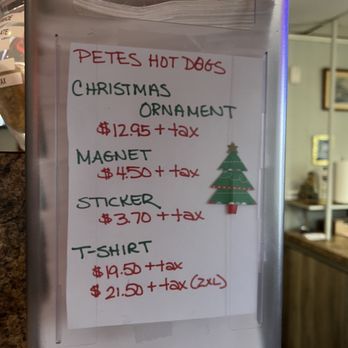 PETES HOT DOGS
CHRISTMAS
ORNAMENT
$12.95 + tax
MAGNET
$4.50 + tax
STICKER
$3.70 + tax
T-SHIRT
$19.50 + tax
$21.50 + tax (2XL)